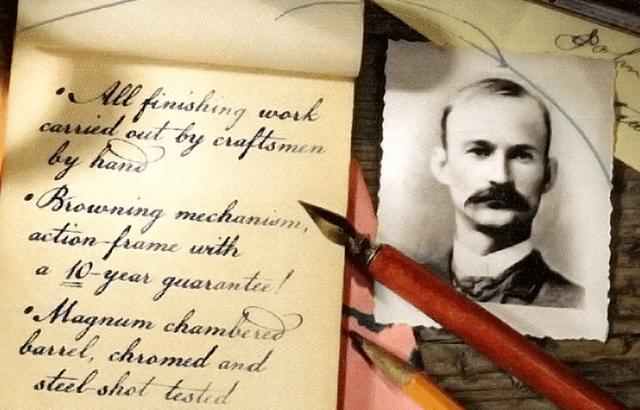 • All finishing work
carried out by craftsmen
by hand
• Browning mechanism,
action-frame with
a 10-year guarantee!
• Magnum chambered
barrel, chromed and
steel-shot tested